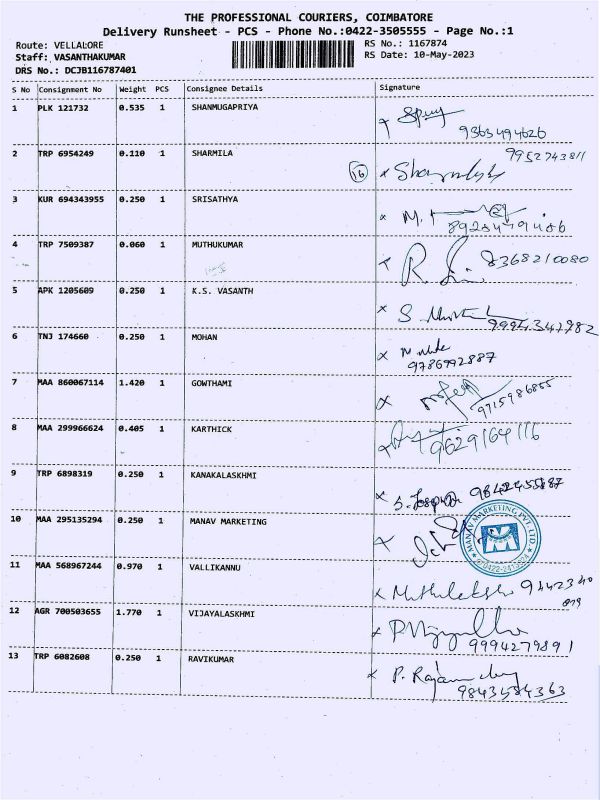 THE PROFESSIONAL COURIERS, COIMBATORE
Delivery Runsheet - PCS - Phone No.:0422-3505555 - Page No.:1
Route: VELLALORE RS No.: 1167874
Staff: VASANTHAKUMAR RS Date: 10-May-2023
DRS No.: DCJB116787401
S No Consignment No Weight PCS Consignee Details Signature
1 PLK 121732 0.535 1 SHANMUGAPRIYA
9363494626
2 TRP 6954249 0.110 1 SHARMILA 9952743811
16
3 KUR 694343955 0.250 1 SRISATHYA
4 TRP 7509387 0.060 1 MUTHUKUMAR 8368210080
5 APK 1205609 0.250 1 K.S. VASANTH
9994342982
6 TNJ 174660 0.250 1 MOHAN
9786992887
7 MAA 860067114 1.420 1 GOWTHAMI
9715986855
8 MAA 299966624 0.405 1 KARTHICK
9629164116
9 TRP 6898319 0.250 1 KANAKALASKHMI
9842455887
10 MAA 295135294 0.250 1 MANAV MARKETING
MANAV MARKETING PVT. LTD
11 MAA 568967244 0.970 1 VALLIKANNU
Muthulakshmi 9442340
019
12 AGR 700503655 1.770 1 VIJAYALASKHMI
9994279891
13 TRP 6082608 0.250 1 RAVIKUMAR
9843584363